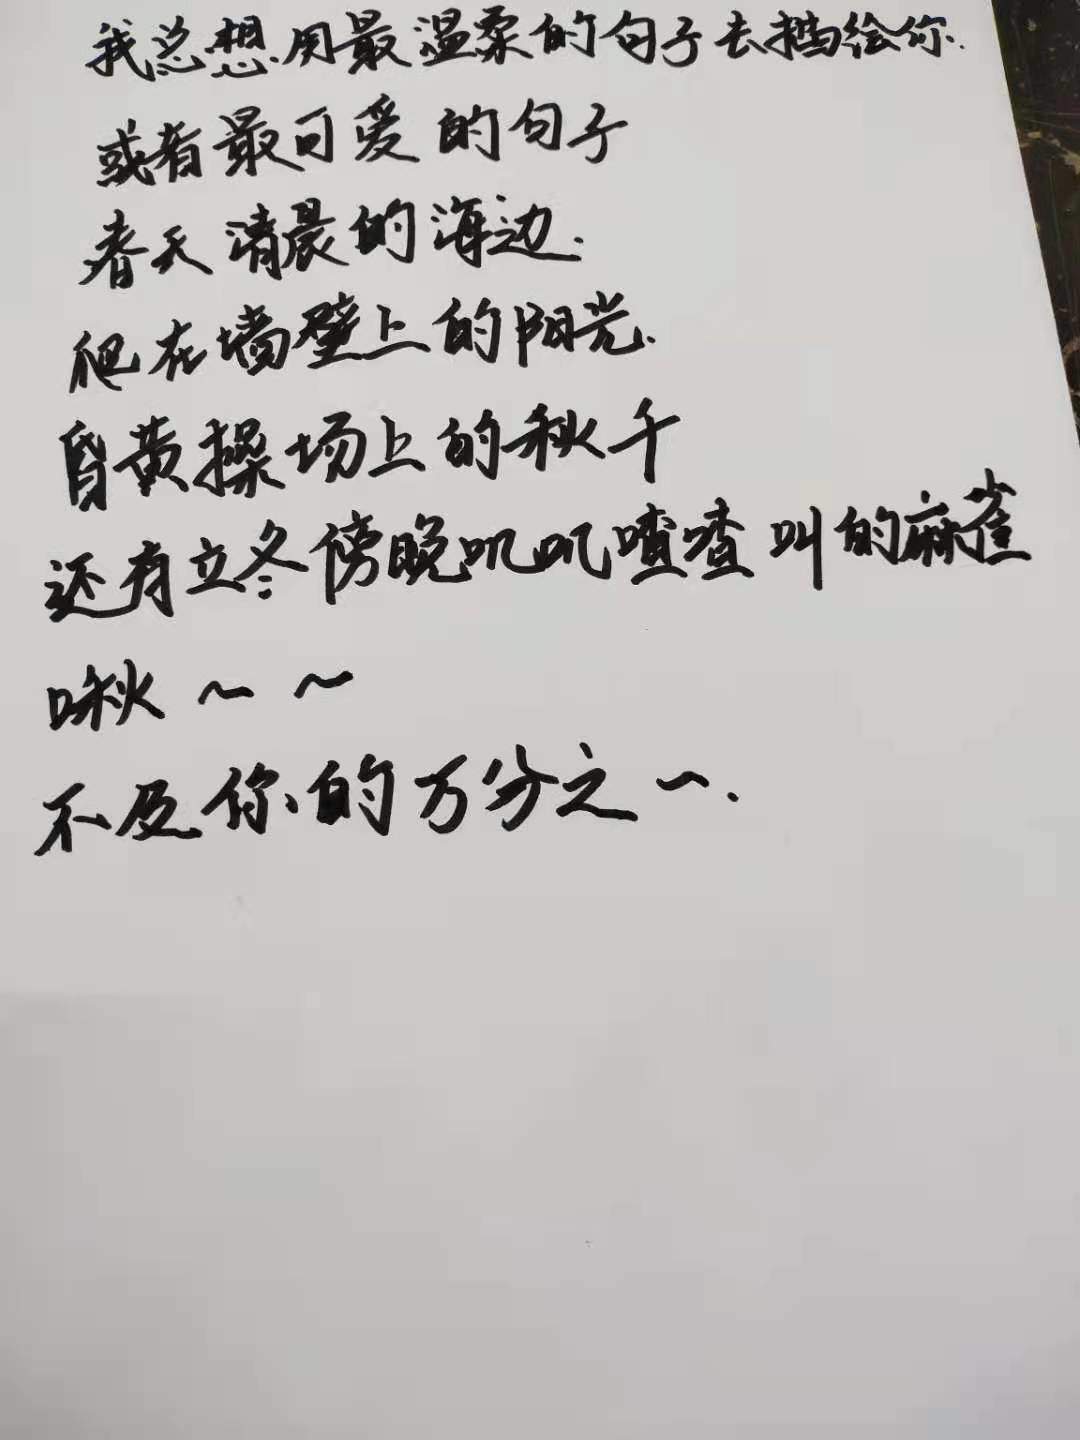 我总想用最温柔的句子去描绘你.
或者最可爱的句子
春天清晨的海边.
爬在墙壁上的阳光.
昏黄操场上的秋千
还有立冬傍晚叽叽喳喳叫的麻雀
啾~ ~
不及你的万分之一.